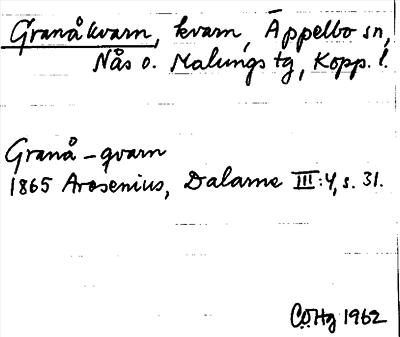 Granåkvarn, kvarn, Äppelbo sn,
Nås o. Malungs tg, Kopp. l.
Granå-qvarn
1865 Arosenius, Dalarne III:4, s. 31.
C.O.Hg 1962